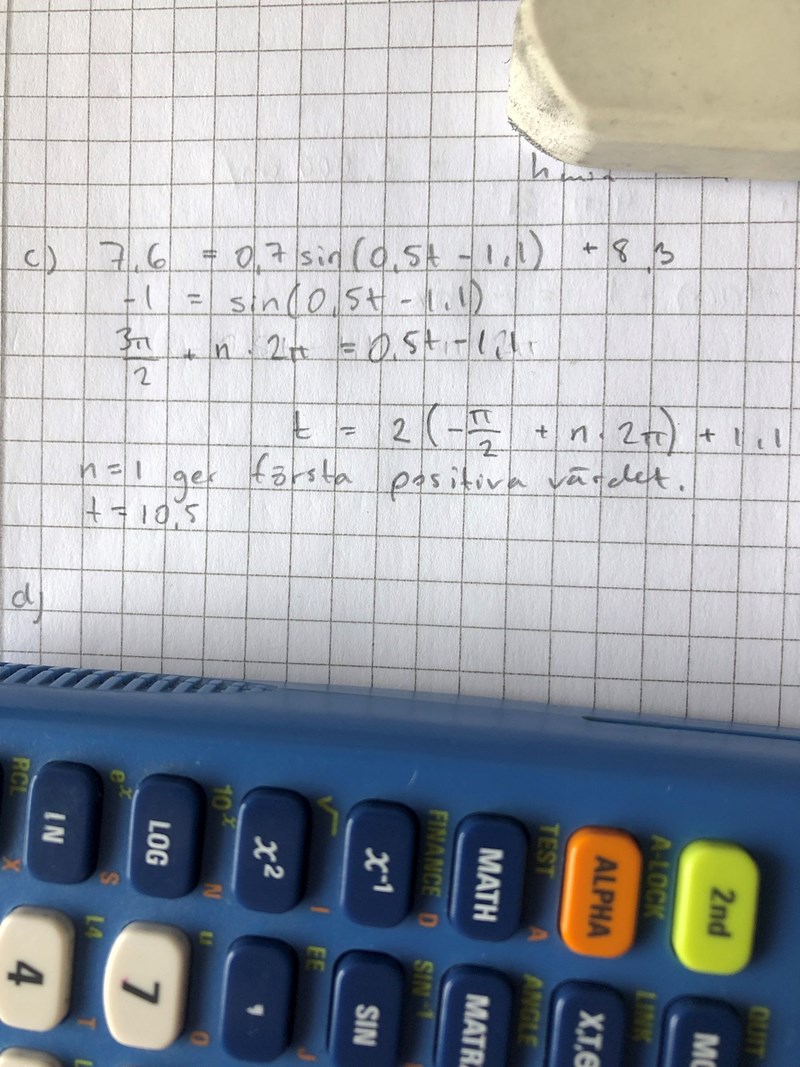 c) 7,6 = 0,7 sin(0,5t - 1,1) + 8,3
-1 = sin(0,5t - 1,1)
3π/2 + n · 2π = 0,5t - 1,1
t = 2(-π/2 + n · 2π) + 1,1
n=1 ger första positiva värdet.
t = 10,5
d)
RCL eˣ 10ˣ √ FINANCE TEST A-LOCK
LN LOG x² x⁻¹ MATH ALPHA 2nd
X S N I D A
L4 u EE SIN⁻¹ ANGLE LINK QUIT
4 7 , SIN MATR X,T,θ MO
T O J